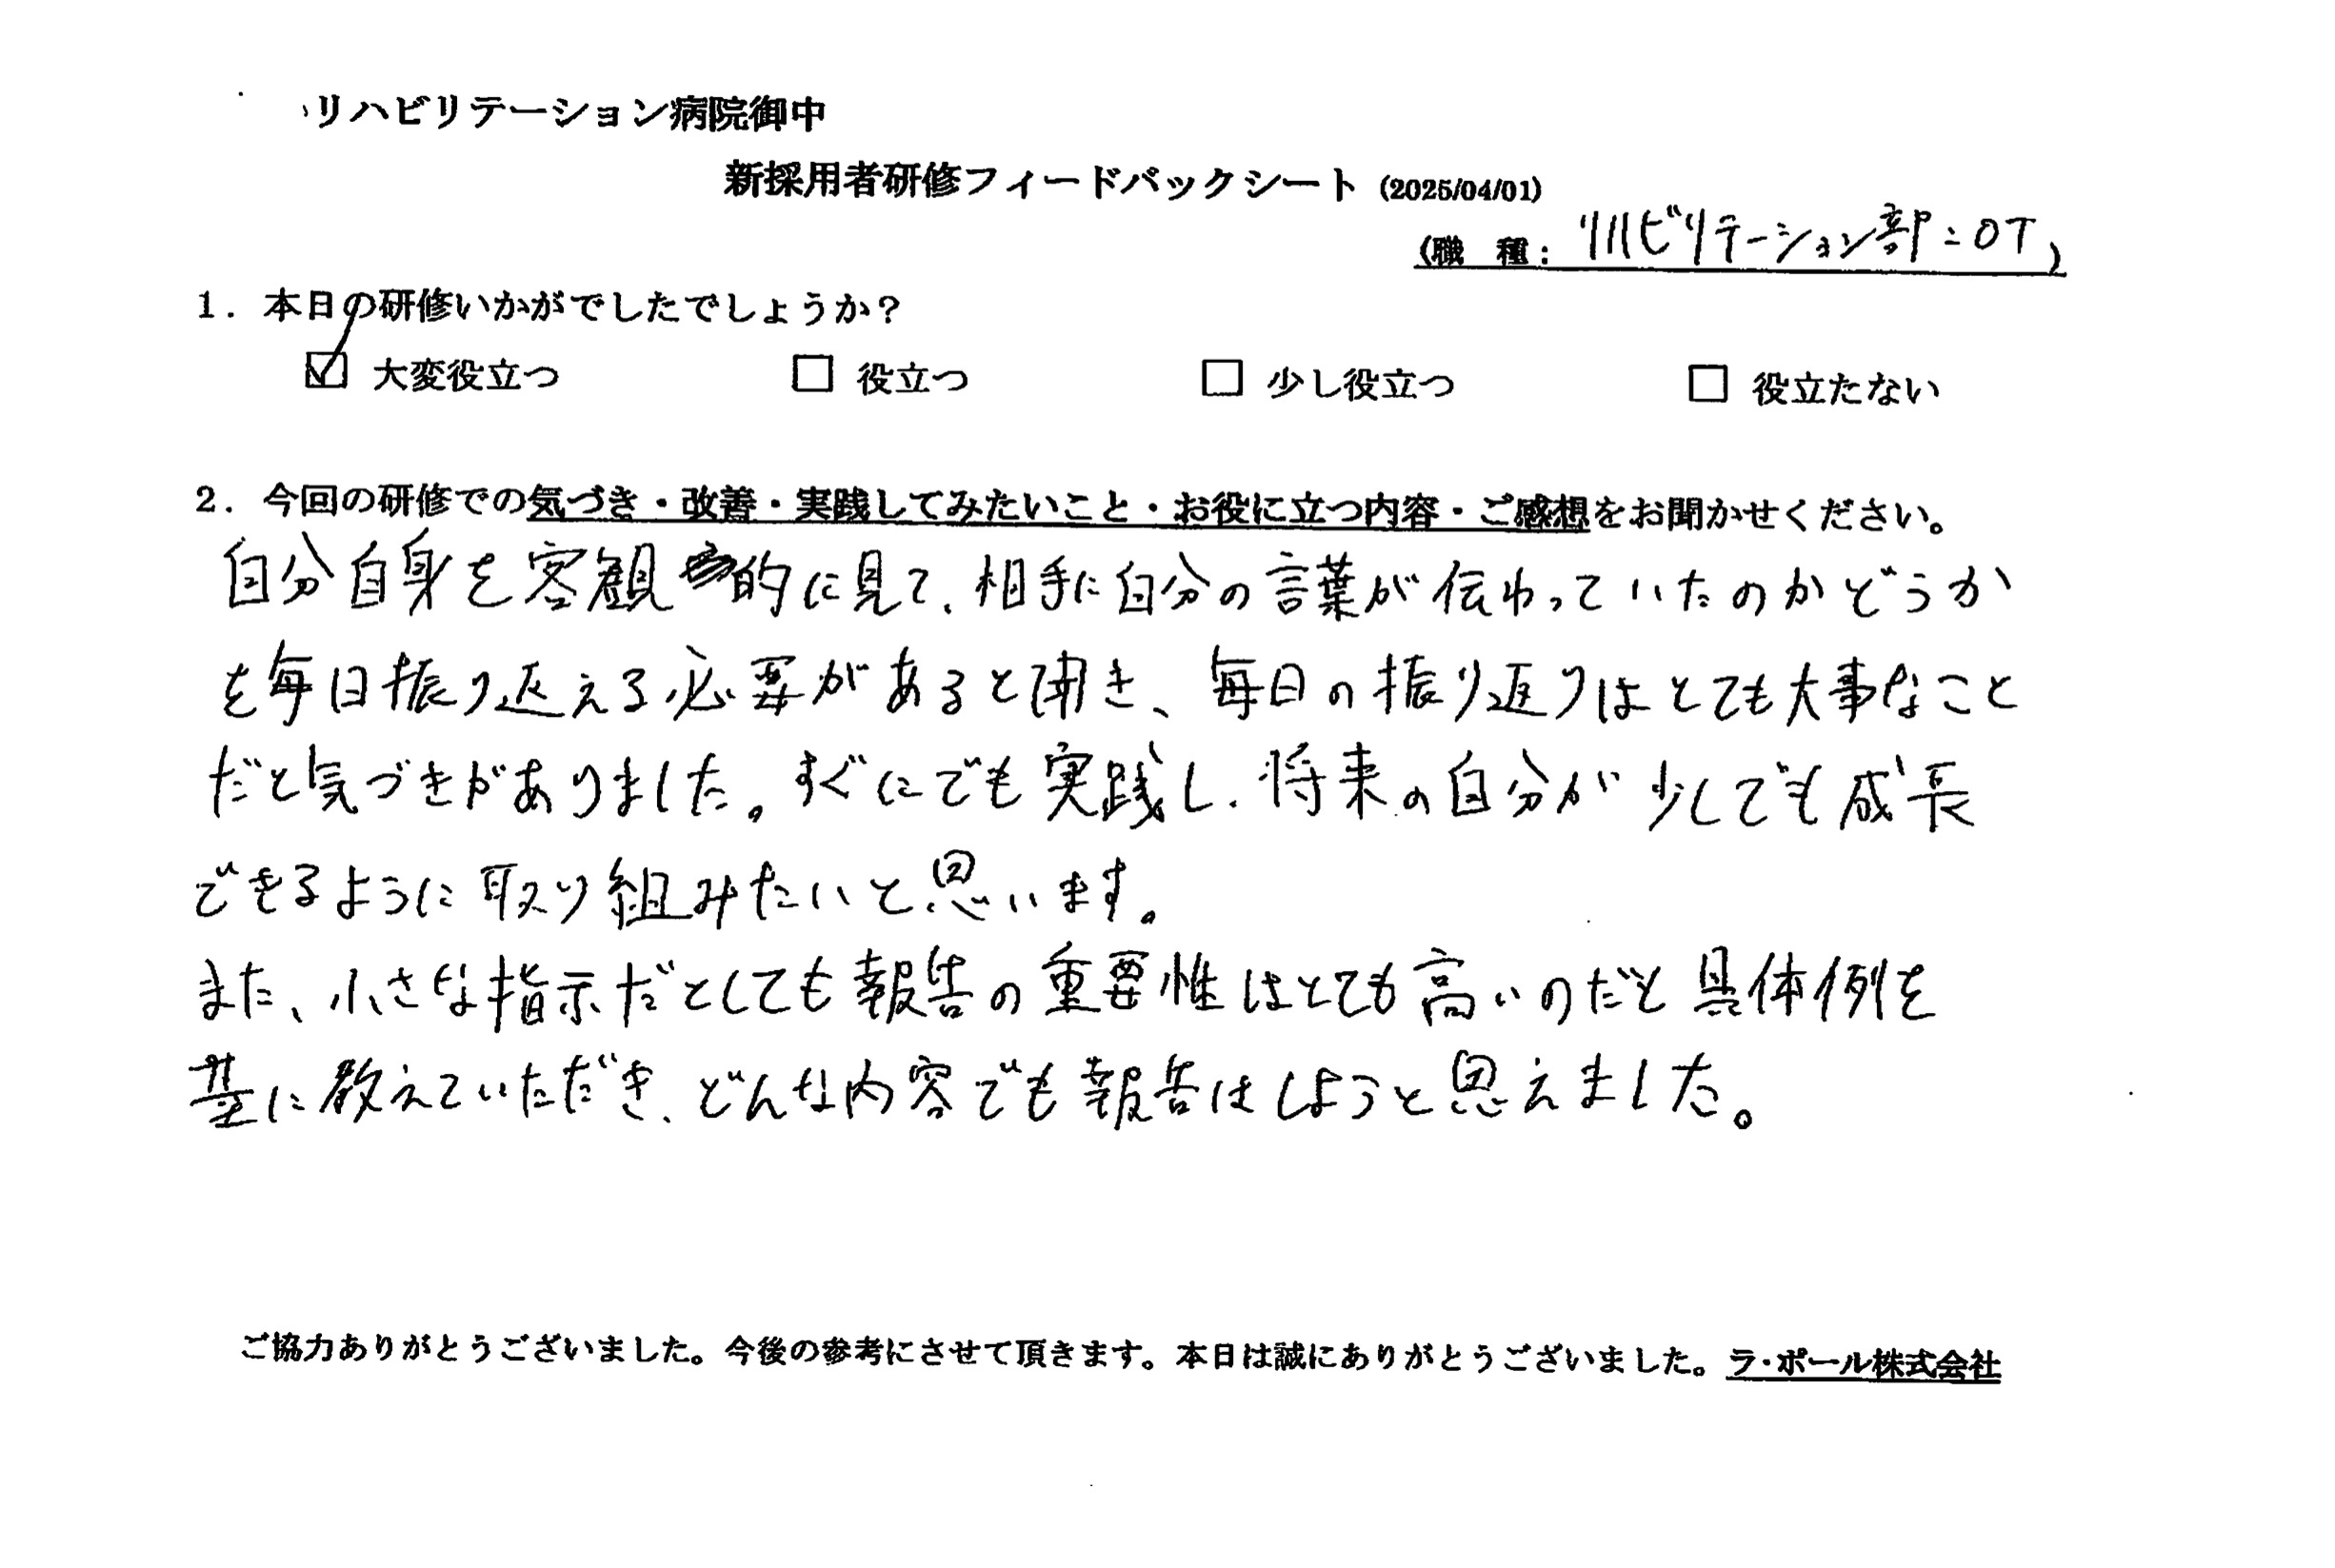 リハビリテーション病院御中
新採用者研修フィードバックシート (2025/04/01)
(職 種: リハビリテーション部:OT)
1. 本日の研修いかがでしたでしょうか?
☑ 大変役立つ □ 役立つ □ 少し役立つ □ 役立たない
2. 今回の研修での気づき・改善・実践してみたいこと・お役に立つ内容・ご感想をお聞かせください。
自分自身を客観的に見て、相手に自分の言葉が伝わっていたのかどうか
を毎日振り返える必要があると聞き、毎日の振り返りはとても大事なこと
だと気づきがありました。すぐにでも実践し、将来の自分が少しでも成長
できるように取り組みたいと思います。
また、小さな指示だとしても報告の重要性はとても高いのだと具体例を
基に教えていただき、どんな内容でも報告はしようと思えました。
ご協力ありがとうございました。今後の参考にさせて頂きます。本日は誠にありがとうございました。ラ・ポール株式会社